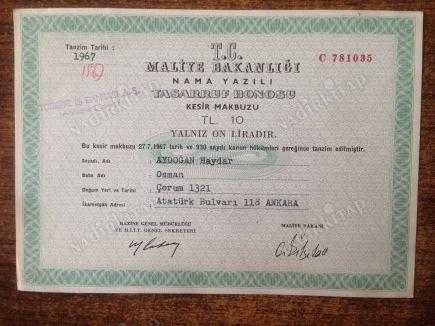 Tanzim Tarihi :
1967
T.C.
C 781035
MALİYE BAKANLIĞI
NAMA YAZILI
TASARRUF BONOSU
KESİR MAKBUZU
TL. 10
YALNIZ ON LİRADIR.
Bu kesir makbuzu 27.7.1967 tarih ve 930 sayılı kanun hükümleri gereğince tanzim edilmiştir.
Soyadı, Adı : AYDOĞAN Haydar
Baba Adı : Osman
Doğum Yeri ve Tarihi : Çorum 1321
İkametgâh Adresi : Atatürk Bulvarı 118 ANKARA
HAZİNE GENEL MÜDÜRLÜĞÜ
VE M.İ.İ.T. GENEL SEKRETERİ
MALİYE BAKANI